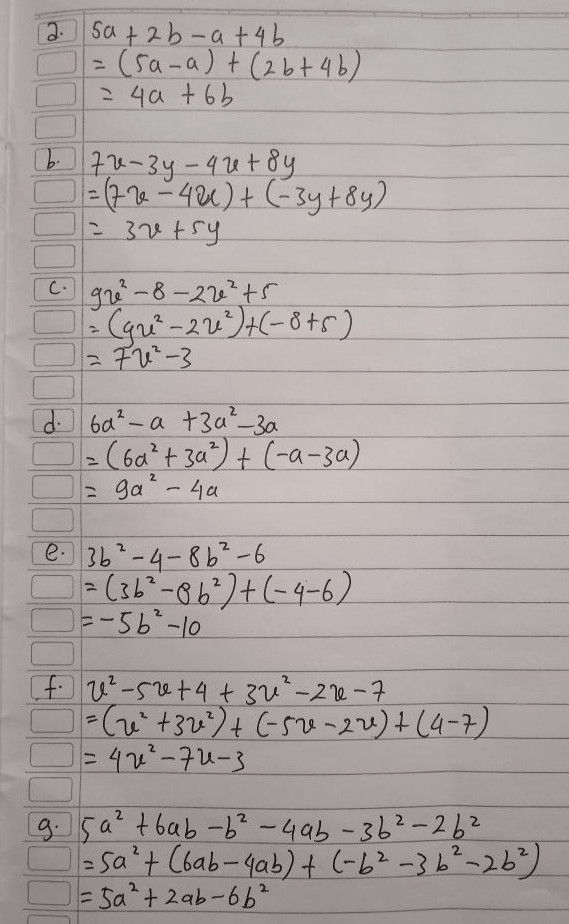 a. 5a + 2b - a + 4b
= (5a - a) + (2b + 4b)
= 4a + 6b
b. 7x - 3y - 4x + 8y
= (7x - 4x) + (-3y + 8y)
= 3x + 5y
c. 9x² - 8 - 2x² + 5
= (9x² - 2x²) + (-8 + 5)
= 7x² - 3
d. 6a² - a + 3a² - 3a
= (6a² + 3a²) + (-a - 3a)
= 9a² - 4a
e. 3b² - 4 - 8b² - 6
= (3b² - 8b²) + (-4 - 6)
= -5b² - 10
f. x² - 5x + 4 + 3x² - 2x - 7
= (x² + 3x²) + (-5x - 2x) + (4 - 7)
= 4x² - 7x - 3
g. 5a² + 6ab - b² - 4ab - 3b² - 2b²
= 5a² + (6ab - 4ab) + (-b² - 3b² - 2b²)
= 5a² + 2ab - 6b²